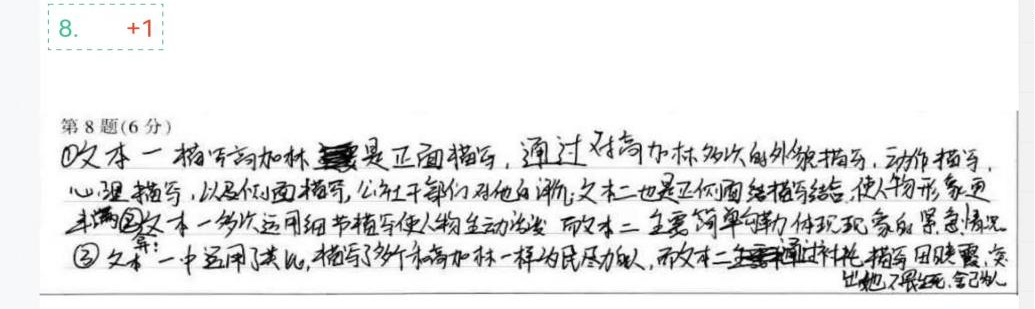 8. +1
第8题(6分)
①文本一描写高加林是正面描写，通过对高加林多次的外貌描写，动作描写，
心理描写，以及侧面描写，公社干部们对他的评价；文本二也是正侧面结描写结合，使人物形象更
丰满②文本一多次运用细节描写使人物生动活泼 而文本二主要简单勾勒 体现现象的紧急情况
③文本一中运用了类比，描写了多个和高加林一样为民尽力的人，而文本二通过衬托 描写田晓霞，突
出她不畏生死，舍己为人